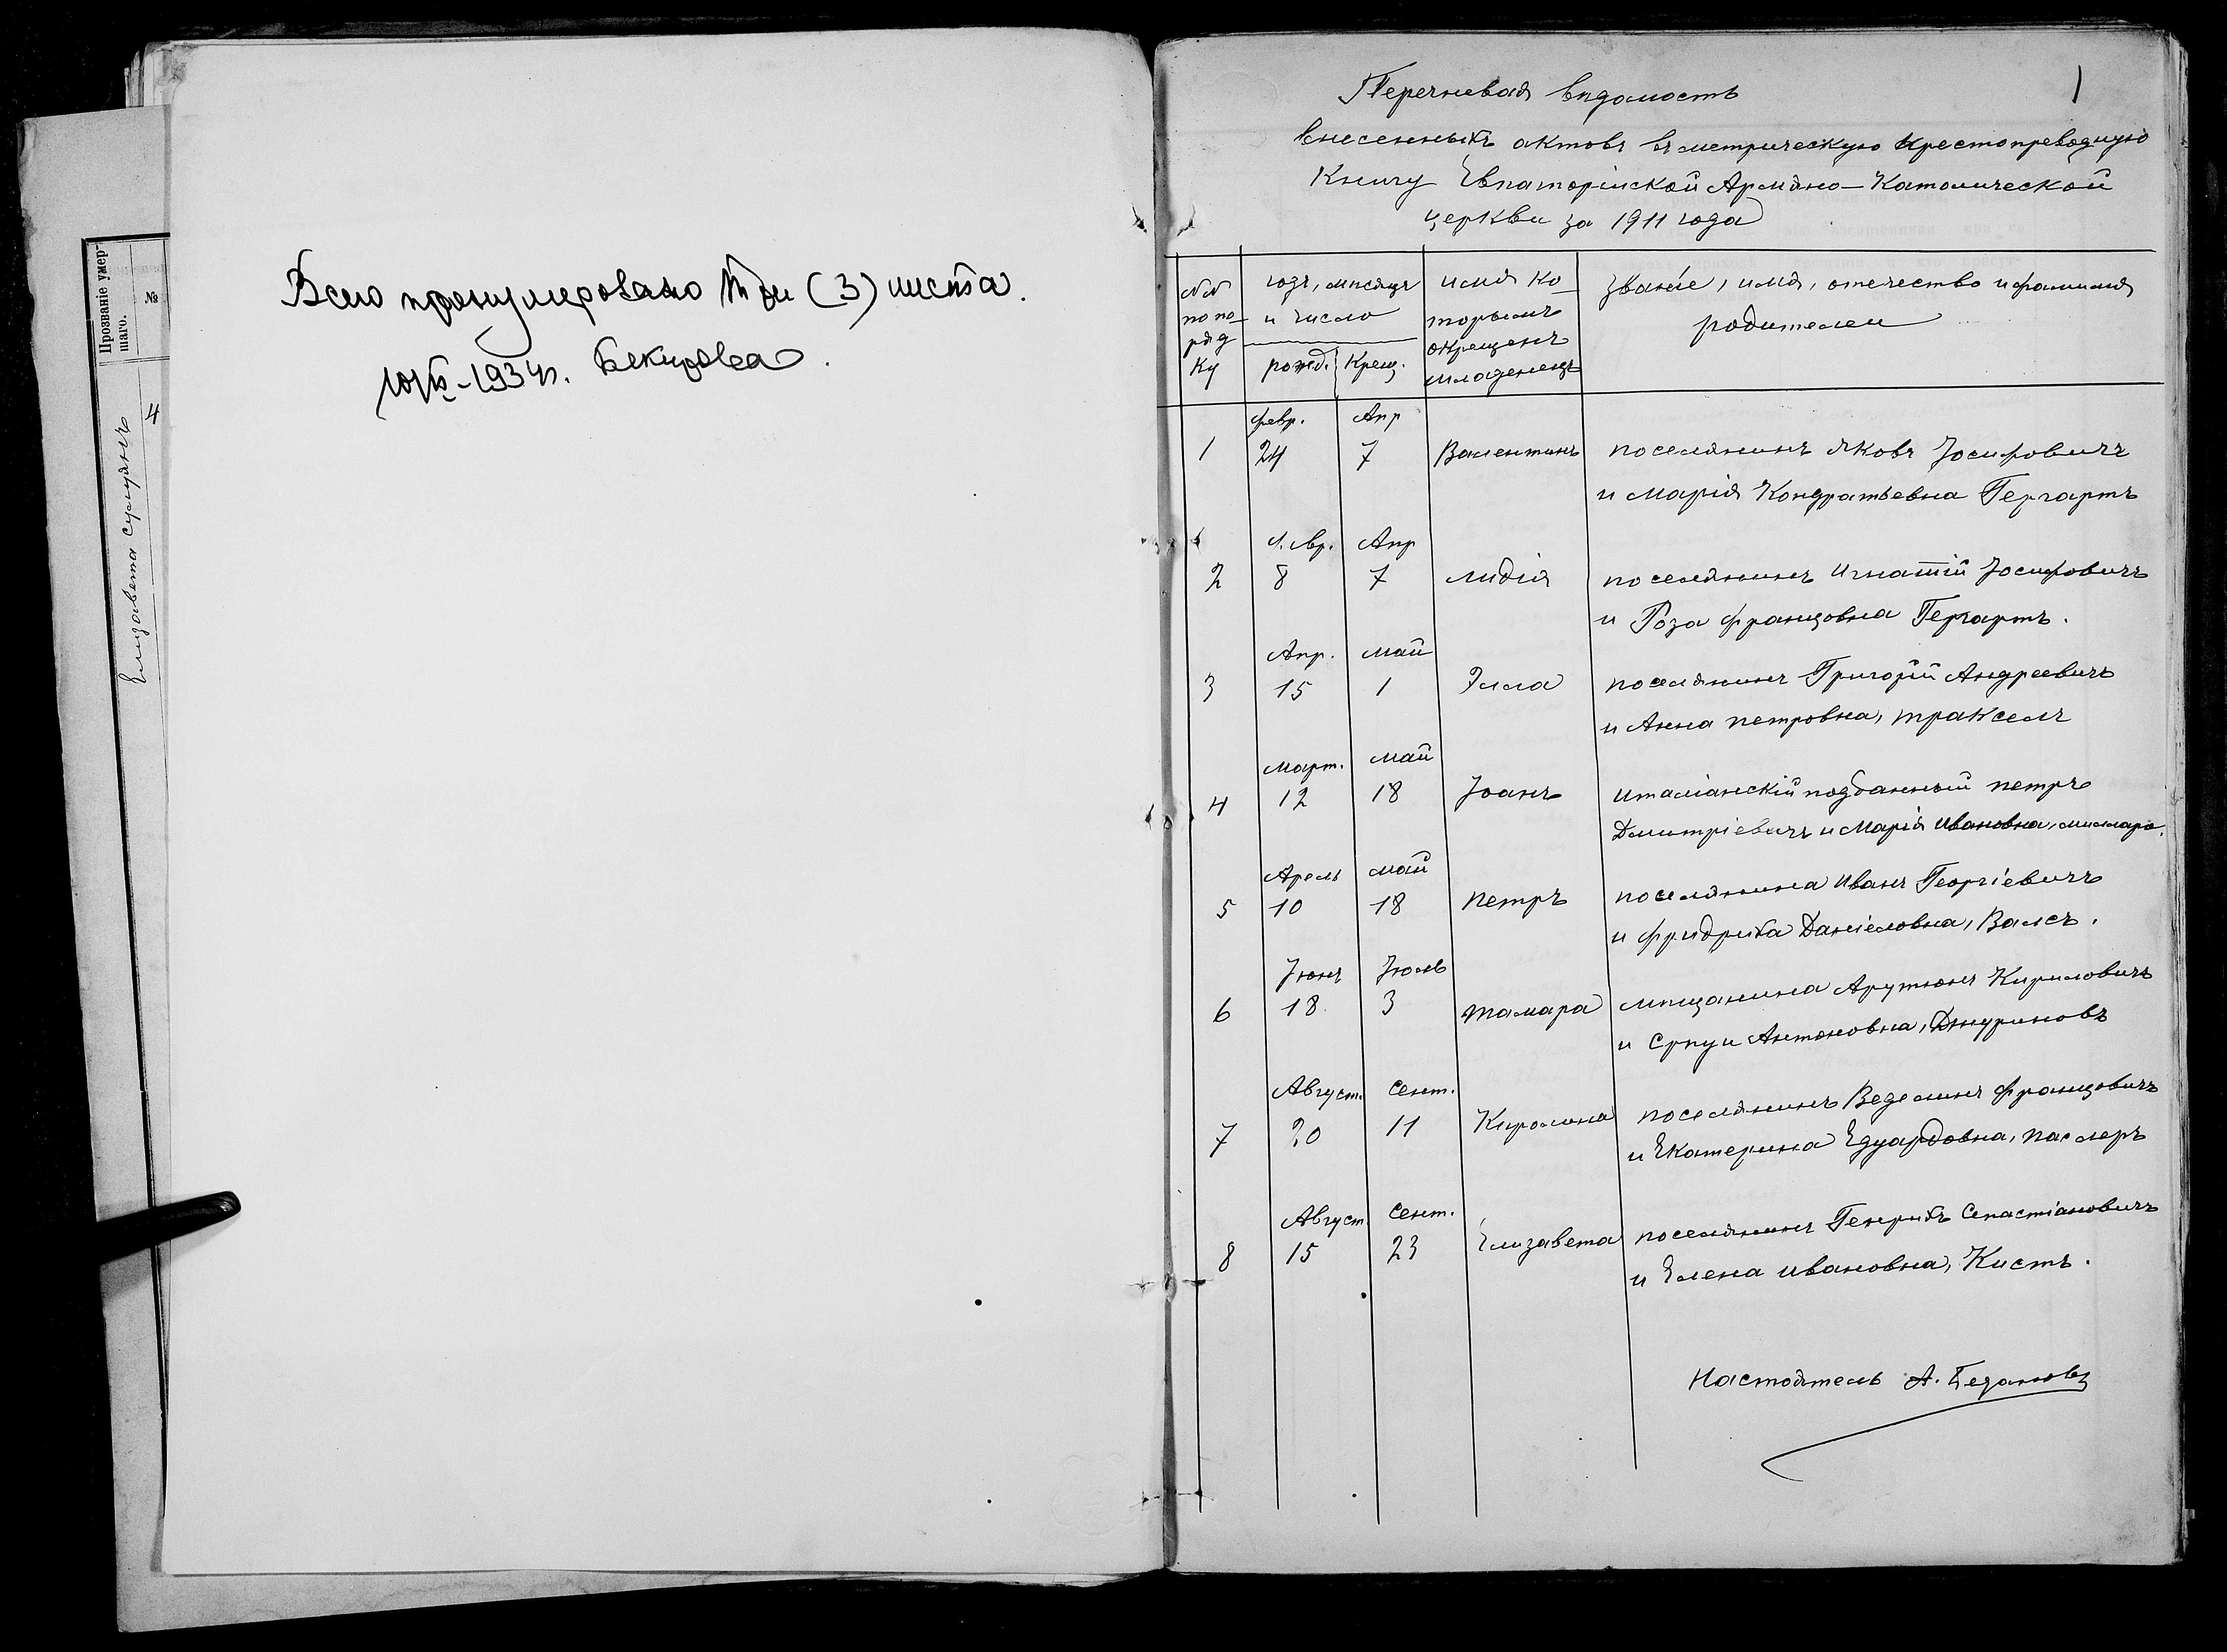 Прозваніе умер-
шаго.
№
Елизавета
4
Всего пронумеровано три (3) листа.
1934г. Бекирова
1
Перечневая вѣдомость
внесенныхъ актовъ въ метрическую крестопреводную
Книгу Евпаторійской Армяно-Католической
церкви за 1911 года
№№ по по-ряд ку
годъ, мѣсяцъ и число
рожд. Крещ.
имя ко-торымъ окрещенъ младенецъ
званіе, имя, отечество и фамилія родителеи
февр. Апр
1 24 7 Валентинъ поселянинъ Яковъ Іосифовичъ
и Марія Кондратьевна Гергартъ
Апр
2 8 7 Лидія поселянинъ Игнатій Іосифовичъ
и Роза Францовна Гергартъ.
Апр. Май
3 15 1 Элла поселянинъ Григорій Андреевичъ
и Анна Петровна, Траксель
Март. Май
4 12 18 Іоанъ Италіанскій подданный Петръ
Дмитріевичъ и Марія Ивановна,
Апрель Май
5 10 18 Петръ поселянина Иванъ Георгіевичъ
и Фридриха Даніеловна, Валсъ.
Іюнь Іюль
6 18 3 Тамара мѣщанина Арутюнъ Кириловичъ
и Српуи Антоновна, Джуриновъ
Август. Сент.
7 20 11 Киролина поселянинъ Веделинъ Францовичъ
и Екатерина Едуардовна, Паслеръ
Август. Сент.
8 15 23 Елизавета поселянинъ Генрихъ Спастіановичъ
и Елена Ивановна, Кистъ.
Настоятель А.